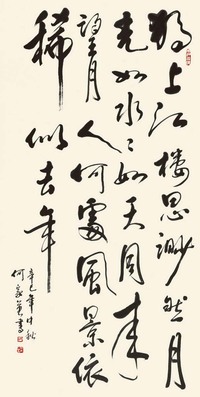 獨上江樓思渺然月
光如水々如天同来
望月人何處風景依
稀似去年
辛巳年中秋
何家英書